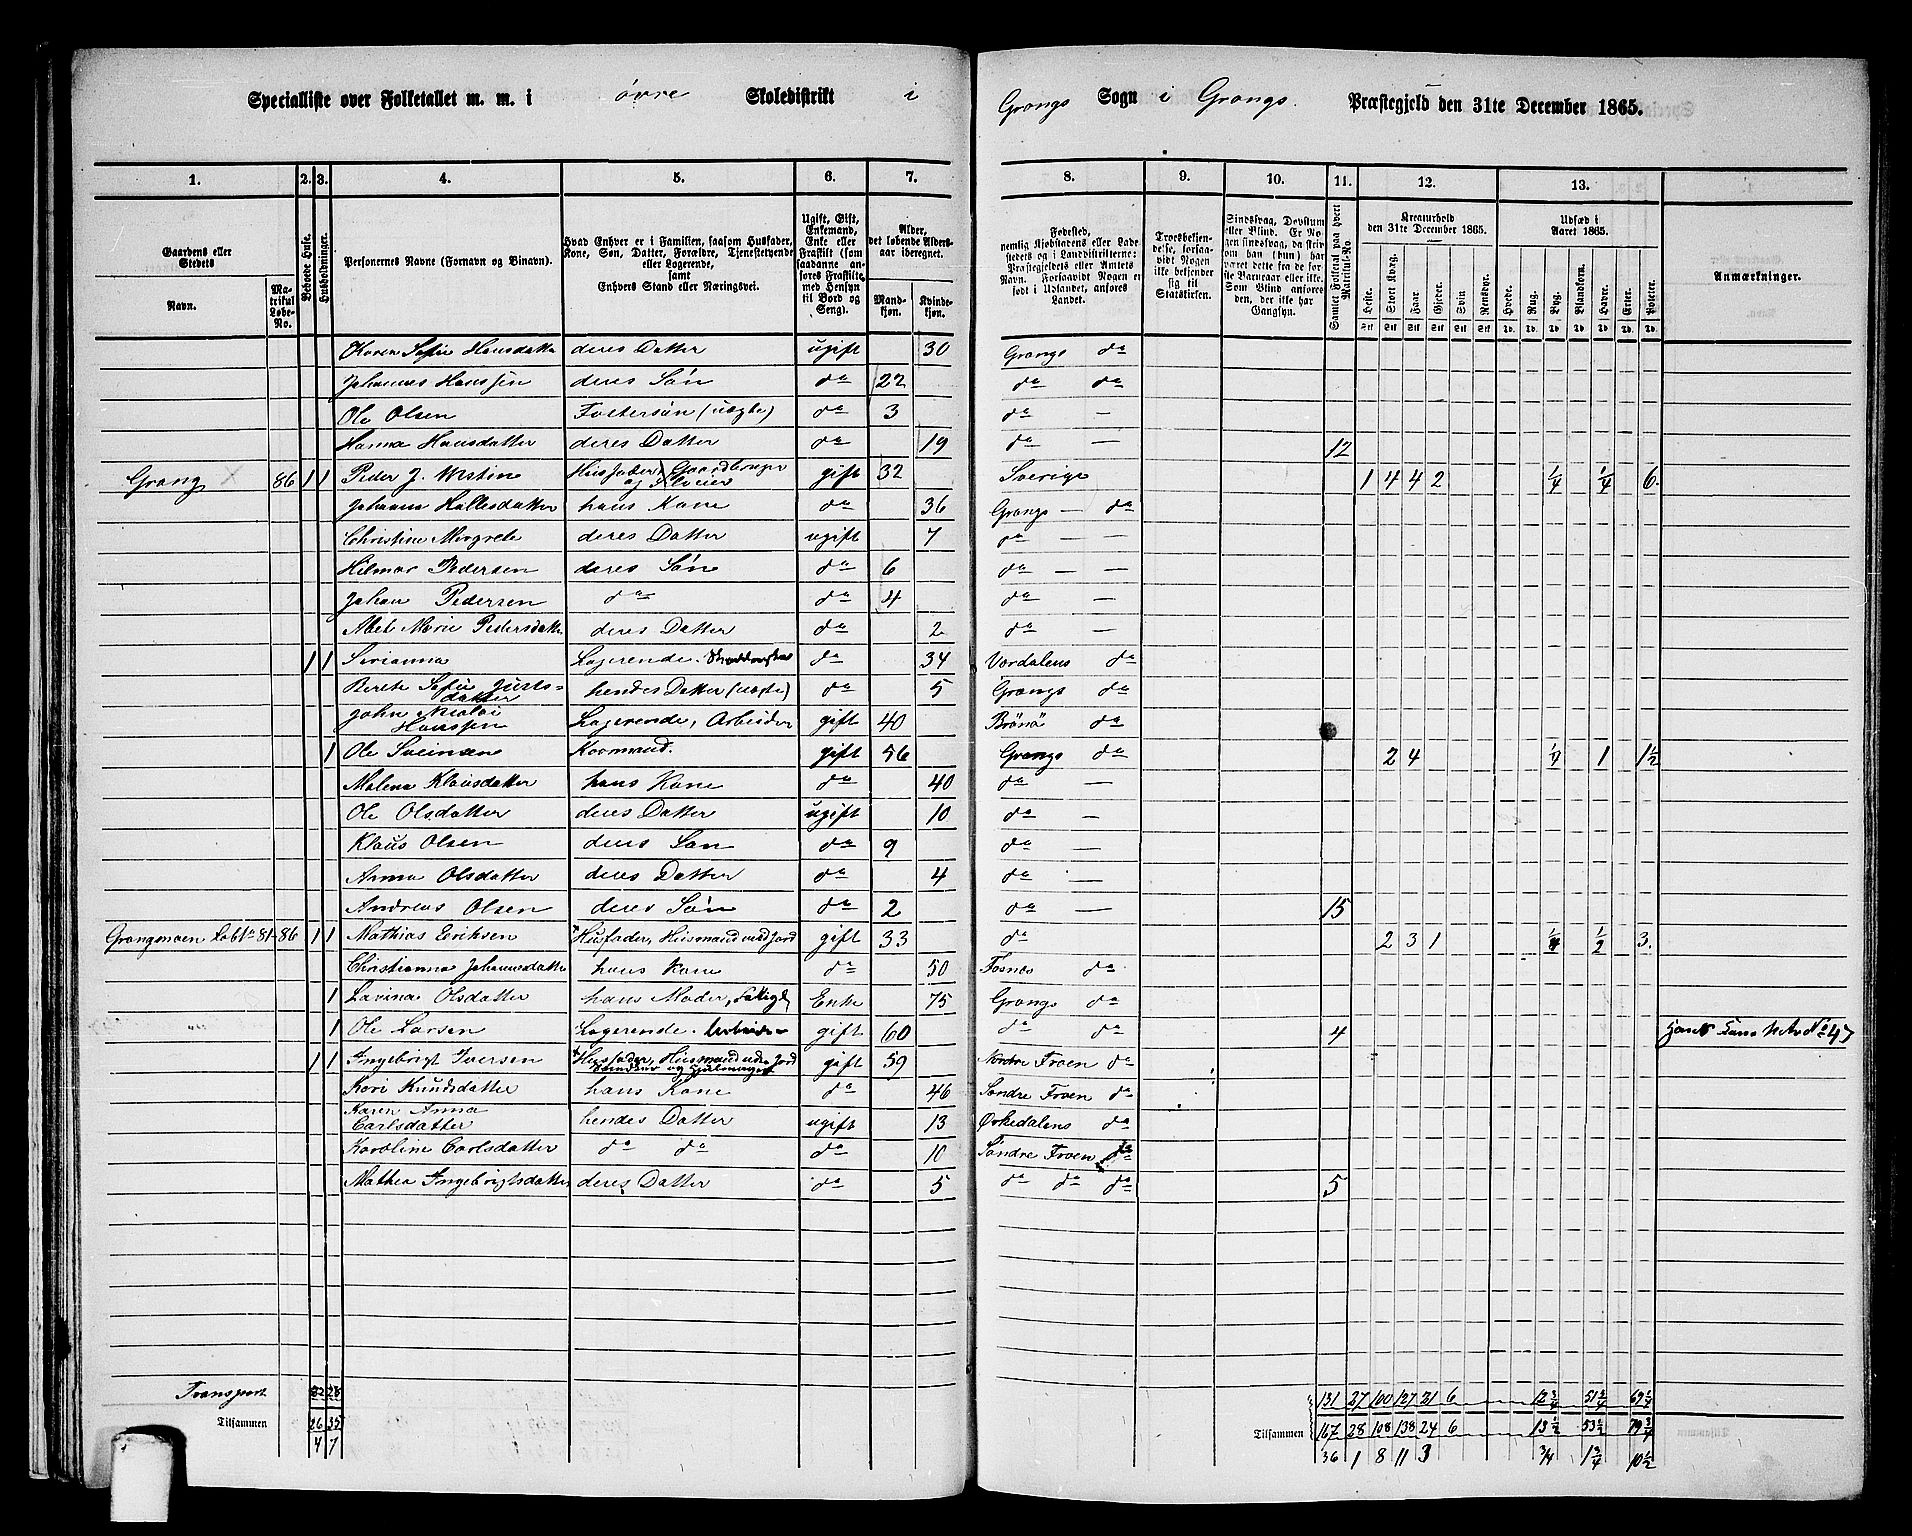 Specialliste over Folketallet m. m. i øvre Skoledistrikt i
Grongs Sogn i Grongs Præstegjeld den 31te December 1865.
1. 2. 3. 4. 5. 6. 7. 8. 9. 10. 11. 12. 13.
Gaardens eller Stedets
Navn.
Matrikul Løbe-No.
Beboede Huse.
Husholdninger.
Personernes Navne (Fornavn og Binavn).
Hvad Enhver er i Familien, saasom Husfader, Kone, Søn, Datter, Forældre, Tjenestetyende eller Logerende, samt Enhvers Stand eller Næringsvei.
Ugift, Gift, Enkemand, Enke eller Fraskilt (som saadanne anføres Fraskilte med Hensyn til Bord og Seng).
Alder, det løbende Alders-aar iberegnet.
Mandkjøn.
Kvindekjøn.
Fødested, nemlig Kjøbstadens eller Ladestedets og i Landdistrikterne: Præstegjeldets eller Amtets Navn. Forsaavidt Nogen er født i Udlandet, anføres Landet.
Troesbekjendelse, forsaavidt Nogen ikke bekjender sig til Statskirken.
Sindssvag, Døvstum eller Blind.
Samlet Folketal paa hvert Matrikul-No.
Kreaturhold den 31te December 1865.
Heste. Stort Kvæg. Faar. Gjeder. Svin Rensdyr.
Udsæd i Aaret 1865.
Hvede. Rug. Byg. Blandkorn. Havre. Erter. Poteter.
Anmærkninger.
Karen Sofie Hansdatte deres Datter ugift 30 Grongs do
Johannes Hanssen deres Søn do 22 do do
Ole Olsen Fostersøn (uægte) do 3 do —
Hanna Hansdatter deres Datter do 19 do — 12
Grong 86 1 1 Peder J. Husfader Gaardbruger og gift 32 Sverige 1 4 4 2 1/4 1/4 6
Johanna Hallesdatter hans Kone do 36 Grongs — do
Christine Margrete deres Datter ugift 7 do — —
Hilmar Pedersen deres Søn do 6 do — —
Johan Pedersen do do 4 do —
Abel Marie Pedersdatte deres Datter do 2 do —
1 1 Serianna Logerende. do 34 Værdalens do
Berte Sofie datter hendes Datter (uægte) do 5 Grongs do
John Nicolai Hanssen Logerende, Arbeider gift 40 Brönö do
1 Ole Sveinsen gift 56 Grongs do 2 4 1 1½
Malena Klausdatter hans Kone do 40 do —
Ole Olsdatter deres Datter ugift 10 do —
Klaus Olsen deres Søn do 9 do —
Anna Olsdatter deres Datter do 4 do —
Andreas Olsen deres Søn do 2 do — 15
Grongmoen 81-86 1 1 Mathias Eriksen Husfader, Husmand med Jord gift 33 do 2 3 1 ½ 3.
Christianna Johannsdatte hans Kone do 50 Fosnes do
1 Lavina Olsdatter hans Moder, Enke 75 Grongs do
1 Ole Larsen Logerende. gift 60 do do 4
1 1 Ingebrigt Iversen Husfader, Husmand uden Jord gift 59 Nordre Froen do
Kari Knudsdatter hans Kone do 46 Søndre Froen do
Karen Anna Carlsdatter hendes Datter ugift 13 Ørkedalens do
Karoline Carlsdatter do do do 10 Søndre Froen do
Mathea Ingebrigtsdatte deres Datter do 5 do do do 5
Transport 28 131 27 100 127 21 6 12¾ 51¾ 69¼
Tilsammen 26 35 Tilsammen 167 28 108 138 24 6 13½ 53½ 79¾
4 7 36 1 8 11 3 3/4 1¾ 10½